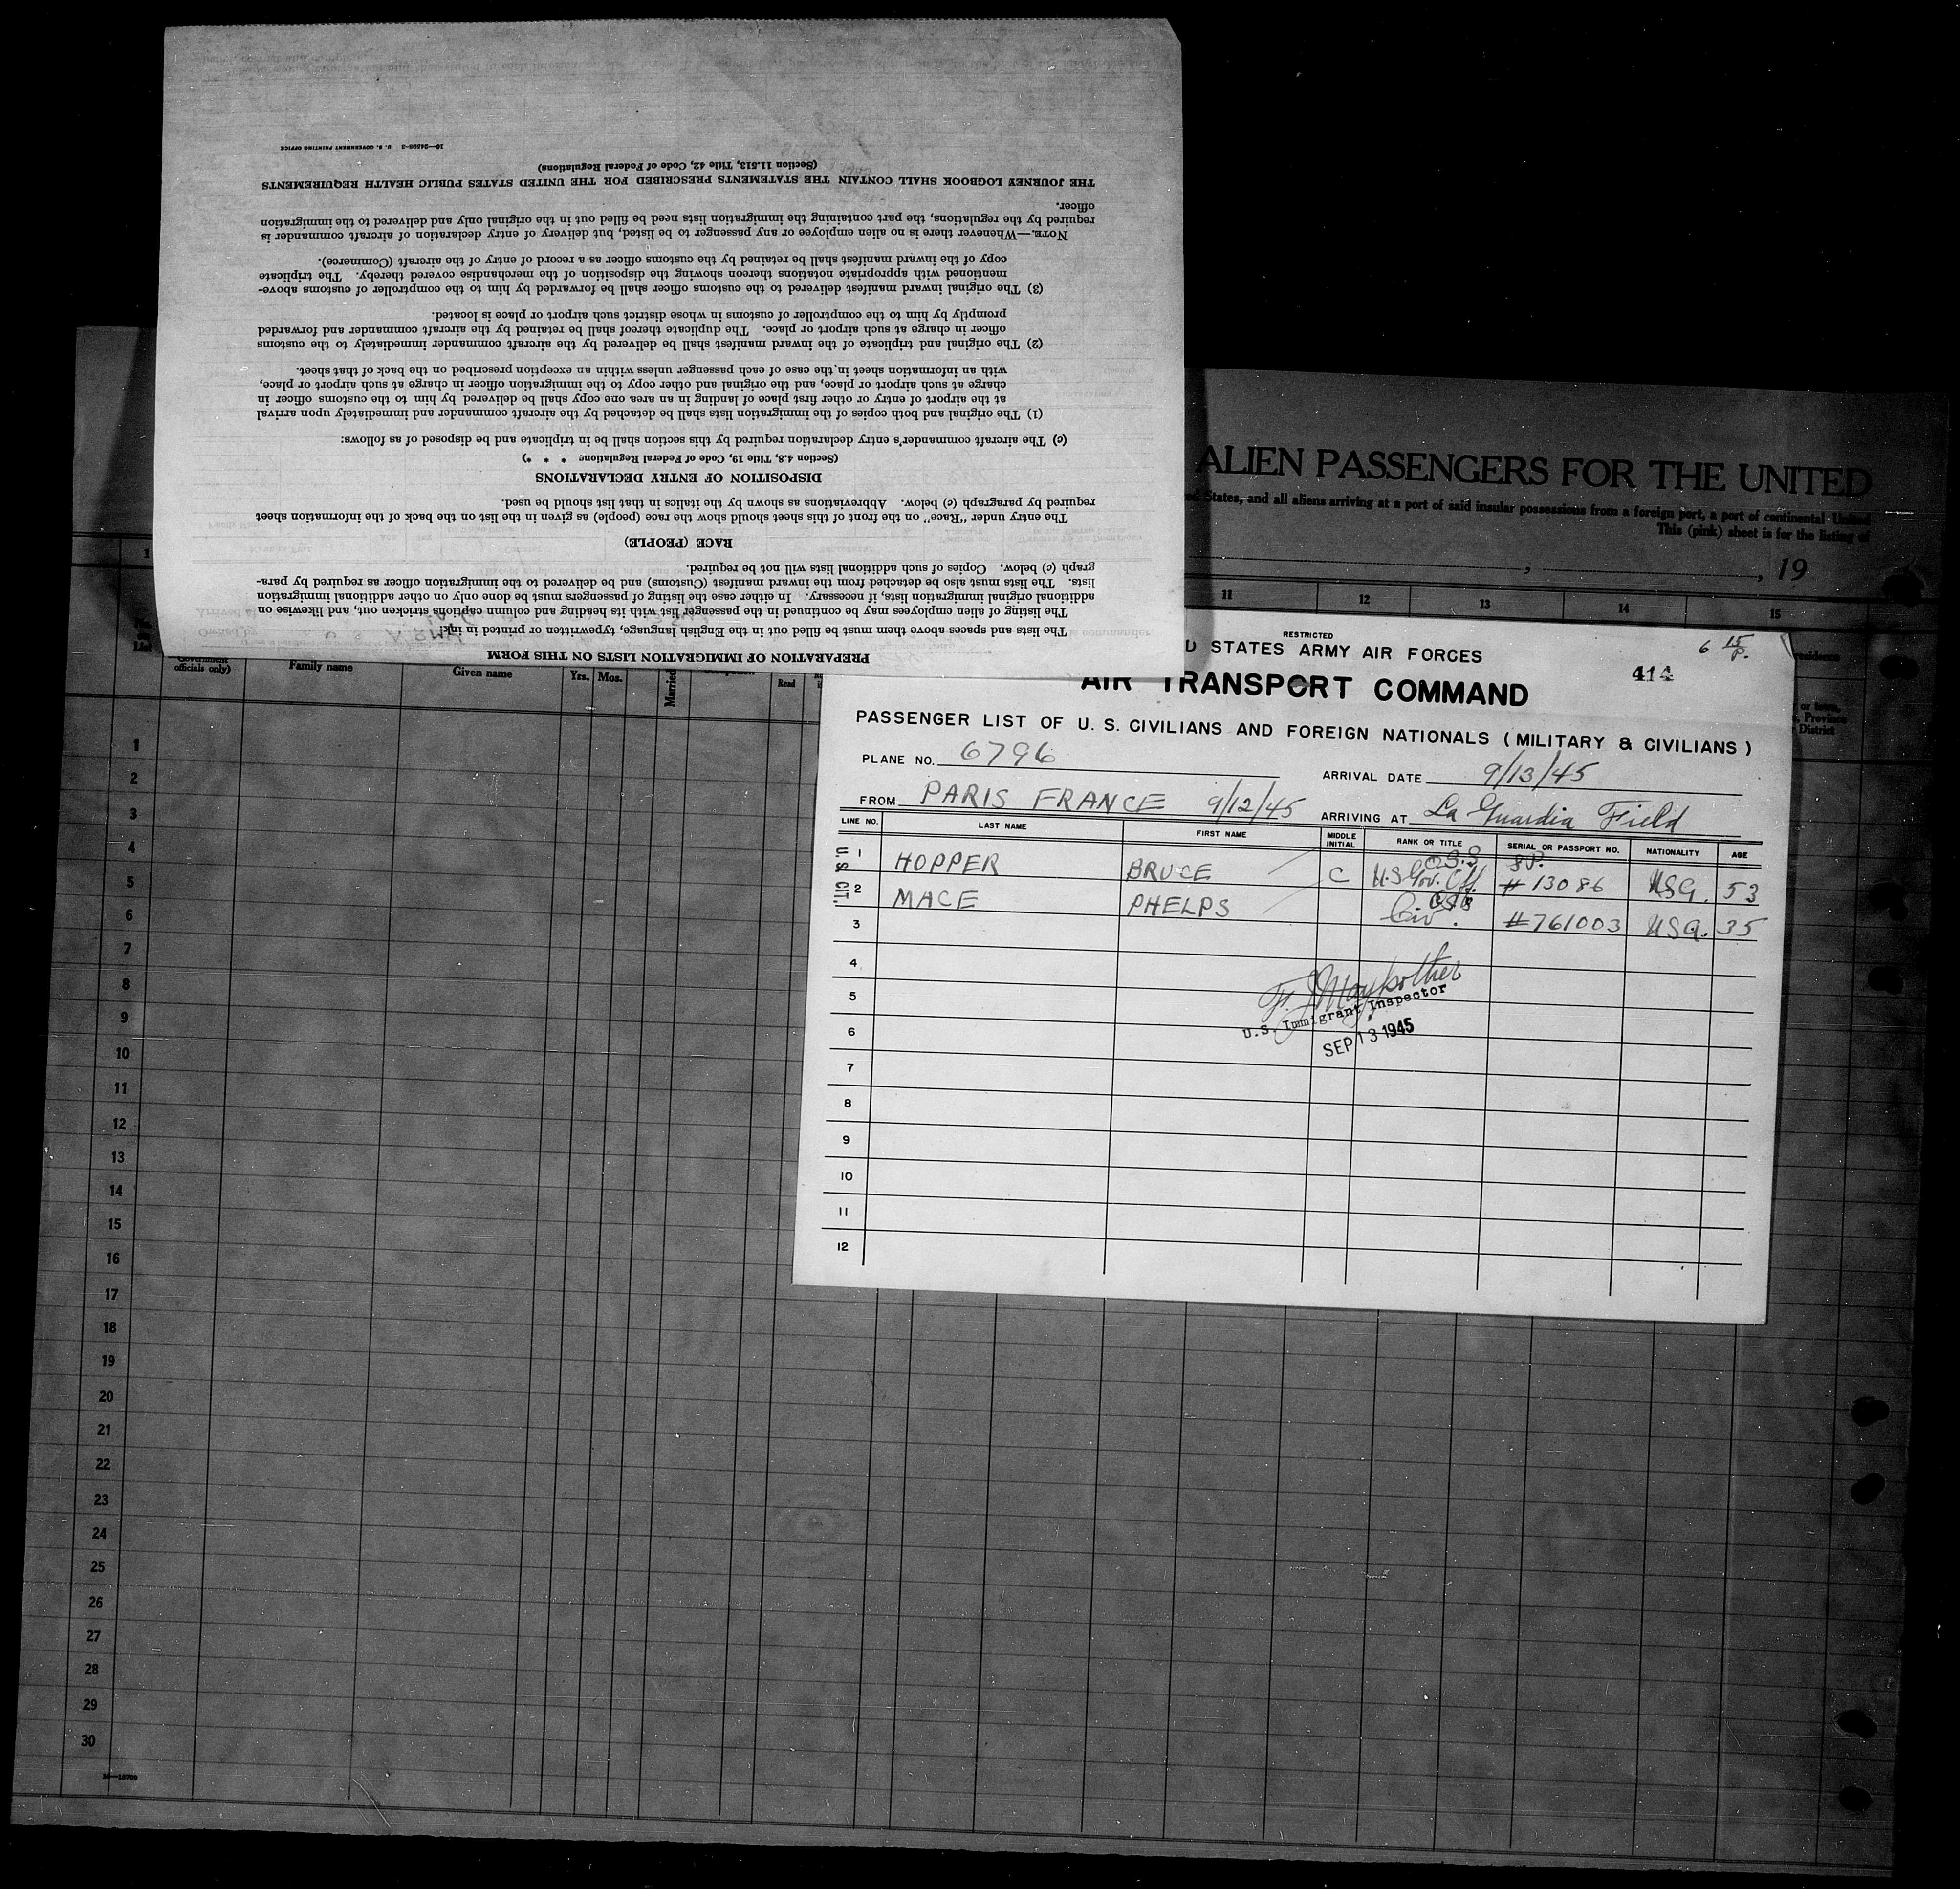 PREPARATION OF IMMIGRATION LISTS ON THIS FORM
The lists and spaces above them must be filled out in the English language, typewritten or printed in ink.
The listing of alien employees may be continued in the passenger list with its heading and column captions stricken out, and likewise on
additional original immigration lists, if necessary. In either case the listing of passengers must be done only on other additional immigration
lists. The lists must also be detached from the inward manifest (Customs) and be delivered to the immigration officer as required by para-
graph (c) below. Copies of such additional lists will not be required.
RACE (PEOPLE)
The entry under "Race" on the front of this sheet should show the race (people) as given in the list on the back of the information sheet
required by paragraph (c) below. Abbreviations as shown by the italics in that list should be used.
DISPOSITION OF ENTRY DECLARATIONS
(Section 4.8, Title 19, Code of Federal Regulations * * *)
(c) The aircraft commander's entry declaration required by this section shall be in triplicate and be disposed of as follows:
(1) The original and both copies of the immigration lists shall be detached by the aircraft commander and immediately upon arrival
at the airport of entry or other first place of landing in an area one copy shall be delivered by him to the customs officer in
charge at such airport or place, and the original and other copy to the immigration officer in charge at such airport or place,
with an information sheet in the case of each passenger unless within an exception prescribed on the back of that sheet.
(2) The original and triplicate of the inward manifest shall be delivered by the aircraft commander immediately to the customs
officer in charge at such airport or place. The duplicate thereof shall be retained by the aircraft commander and forwarded
promptly by him to the comptroller of customs in whose district such airport or place is located.
(3) The original inward manifest delivered to the customs officer shall be forwarded by him to the comptroller of customs above-
mentioned with appropriate notations thereon showing the disposition of the merchandise covered thereby. The triplicate
copy of the inward manifest shall be retained by the customs officer as a record of entry of the aircraft (Commerce).
NOTE.—Whenever there is no alien employee or any passenger to be listed, but delivery of entry declaration of aircraft commander is
required by the regulations, the part containing the immigration lists need be filled out in the original only and delivered to the immigration
officer.
THE JOURNEY LOGBOOK SHALL CONTAIN THE STATEMENTS PRESCRIBED FOR THE UNITED STATES PUBLIC HEALTH REQUIREMENTS
(Section 11.513, Title 42, Code of Federal Regulations)
16—24599-3 U. S. GOVERNMENT PRINTING OFFICE
ALIEN PASSENGERS FOR THE UNITED
States, and all aliens arriving at a port of said insular possessions from a foreign port, a port of continental United
This (pink) sheet is for the listing of
, , 19
11 12 13 14 15
officials only) Family name Given name Yrs. Mos. Married Read
1
2
3
4
5
6
7
8
9
10
11
12
13
14
15
16
17
18
19
20
21
22
23
24
25
26
27
28
29
30
RESTRICTED
D STATES ARMY AIR FORCES
414
6 15 P.
AIR TRANSPORT COMMAND
PASSENGER LIST OF U. S. CIVILIANS AND FOREIGN NATIONALS (MILITARY & CIVILIANS)
PLANE NO. 6796 ARRIVAL DATE 9/13/45
FROM PARIS FRANCE 9/12/45 ARRIVING AT La Guardia Field
LINE NO. LAST NAME FIRST NAME MIDDLE INITIAL RANK OR TITLE SERIAL OR PASSPORT NO. NATIONALITY AGE
U.S. CIT.
1 HOPPER BRUCE C O.S.S U.S Gov. Off. S.P. #13086 USA. 53
2 MACE PHELPS Civ. #761003 USA. 35
3
4
5
6
7
8
9
10
11
12
U.S. Immigrant Inspector
SEP 13 1945